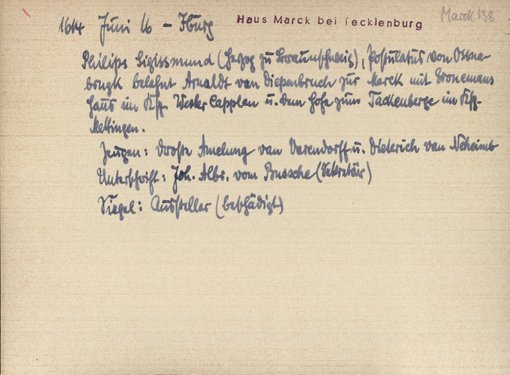 1614 Juni 16 - Iburg
Haus Marck bei Tecklenburg
Marck 138
Philips Sigissmund (Herzog zu Braunschweig), Postulatus von Osna-
brugk belehnt Arnoldt van Diepenbruch zur Marck mit Cronemans
Haus im Ksp. Wester Capplen u. dem Hofe zum Tackenberge im Ksp.
Mettingen.
Zeugen: Drost Amelung van Varendorff u. Dieterich van Neheimb
Unterschrift: Joh. Albr. vom Bussche (Sekretär)
Siegel: Aussteller (beschädigt)